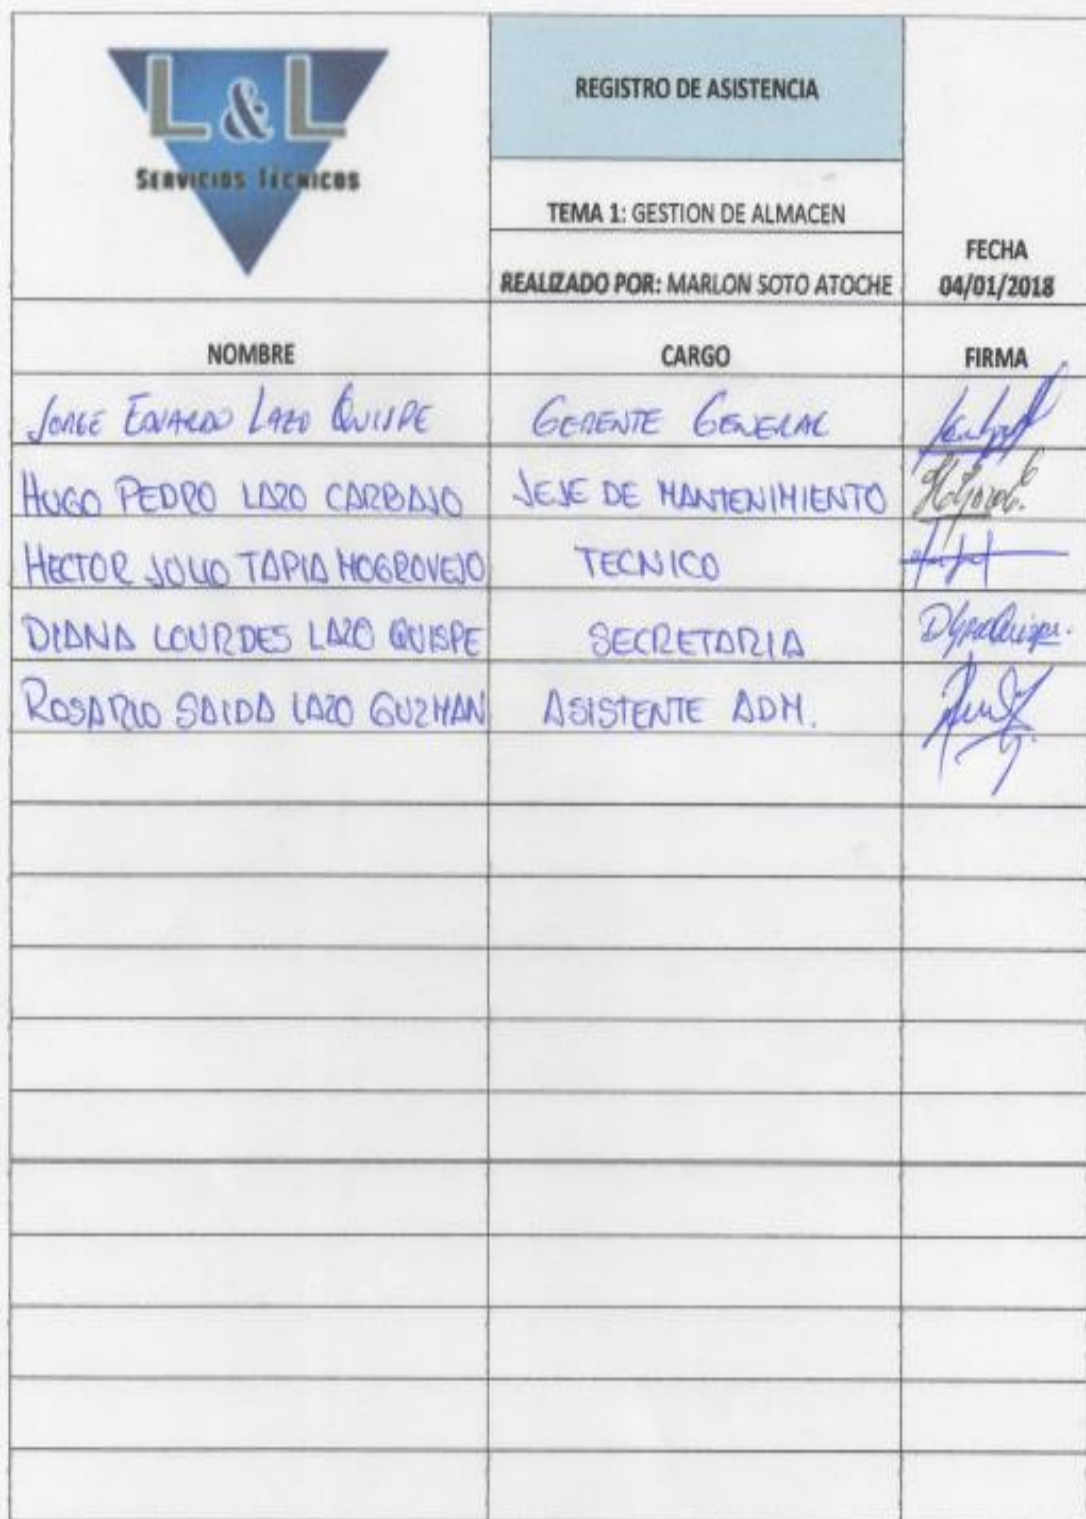 L & L
SERVICIOS TÉCNICOS
REGISTRO DE ASISTENCIA
TEMA 1: GESTION DE ALMACEN
REALIZADO POR: MARLON SOTO ATOCHE
FECHA
04/01/2018
NOMBRE CARGO FIRMA
JORGE EDUARDO LAZO QUISPE GERENTE GENERAL
HUGO PEDRO LAZO CARBAJO JEJE DE MANTENIMIENTO
HECTOR JULIO TAPIA MOGROVEJO TECNICO
DIANA LOURDES LAZO QUISPE SECRETARIA
ROSARIO SAIDA LAZO GUZMAN ASISTENTE ADM.